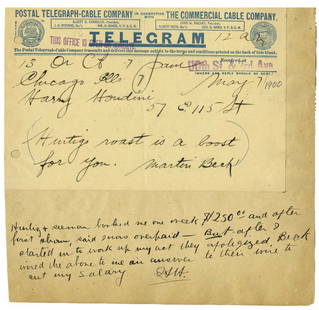 POSTAL TELEGRAPH-CABLE COMPANY. IN CONNECTION WITH THE COMMERCIAL CABLE COMPANY.
TELEGRAM
The Postal Telegraph-Cable Company transmits and delivers this message subject to the terms and conditions printed on the back of this blank.
THIS OFFICE IS
Chicago Ills 7
May 7 1900
(WHERE ANY REPLY SHOULD BE SENT.)
Harry Houdini
57 E 115 St
Hurtigs roast is a boost
for you. Martin Beck
Hurtig & Seamon booked me one week $1250.00 and after
first show, said I was overpaid — But after I
started in to work up my act they apologized. Beck
wired the above to me an answer to their wire to
cut my salary H.H.